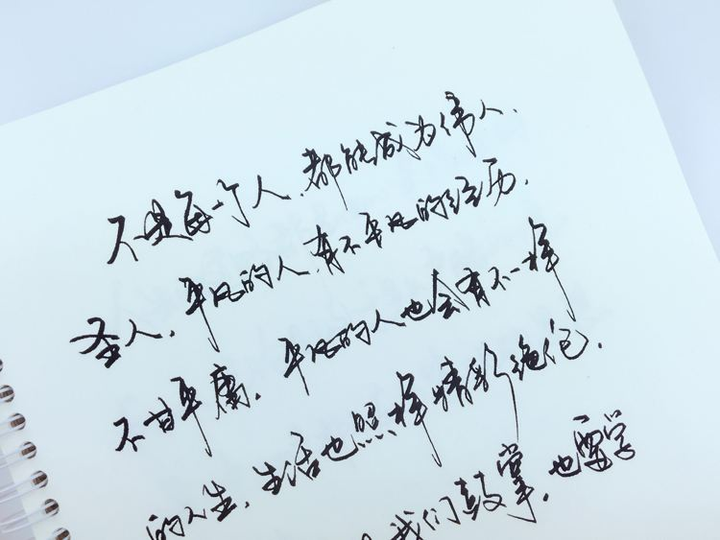 不是每个人，都能成为伟人、
圣人，平凡的人，有不平凡的经历，
不甘平庸，平凡的人也会有不一样
的人生，生活也照样精彩绝伦，
我们鼓掌，也要学